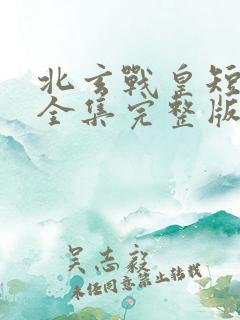 北玄戰皇短
全集完整版
吴志毅
未经同意禁止转载